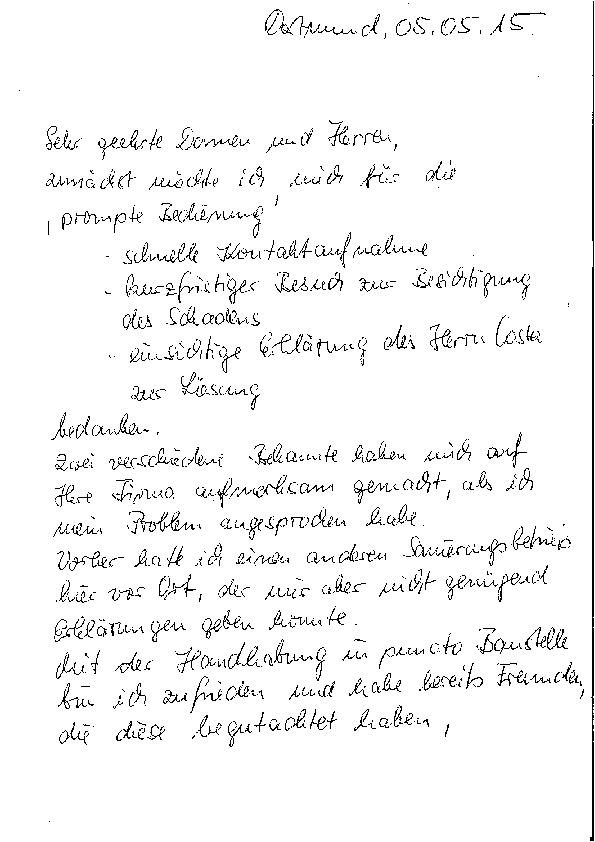 Dortmund, 05.05.15
Sehr geehrte Damen und Herren,
zunächst möchte ich mich für die
'prompte Bedienung'
- schnelle Kontaktaufnahme
- kurzfristiger Besuch zur Besichtigung
des Schadens
- einsichtige Erklärung des Herrn Costa
zur Lösung
bedanken.
Zwei verschiedene Bekannte haben mich auf
Ihre Firma aufmerksam gemacht, als ich
mein Problem angesprochen habe.
Vorher hatte ich einen anderen Sanierungsbetrieb
hier vor Ort, der mir aber nicht genügend
Erklärungen geben konnte.
Mit der Handhabung in puncto Baustelle
bin ich zufrieden und habe bereits Freunden,
die diese begutachtet haben,